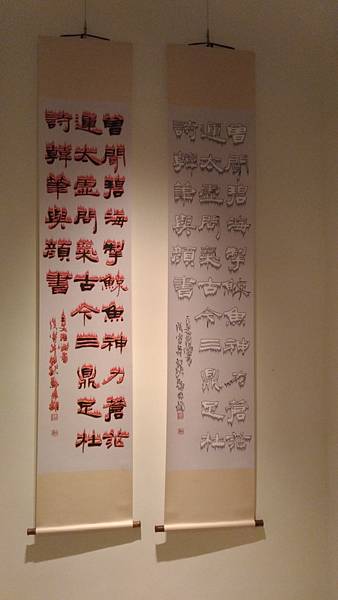 曾聞碧海掣鯨魚神力蒼茫
運太虛間氣古今三鼎足杜
詩韓筆與顏書
曾聞碧海掣鯨魚神力蒼茫
運太虛間氣古今三鼎足杜
詩韓筆與顏書